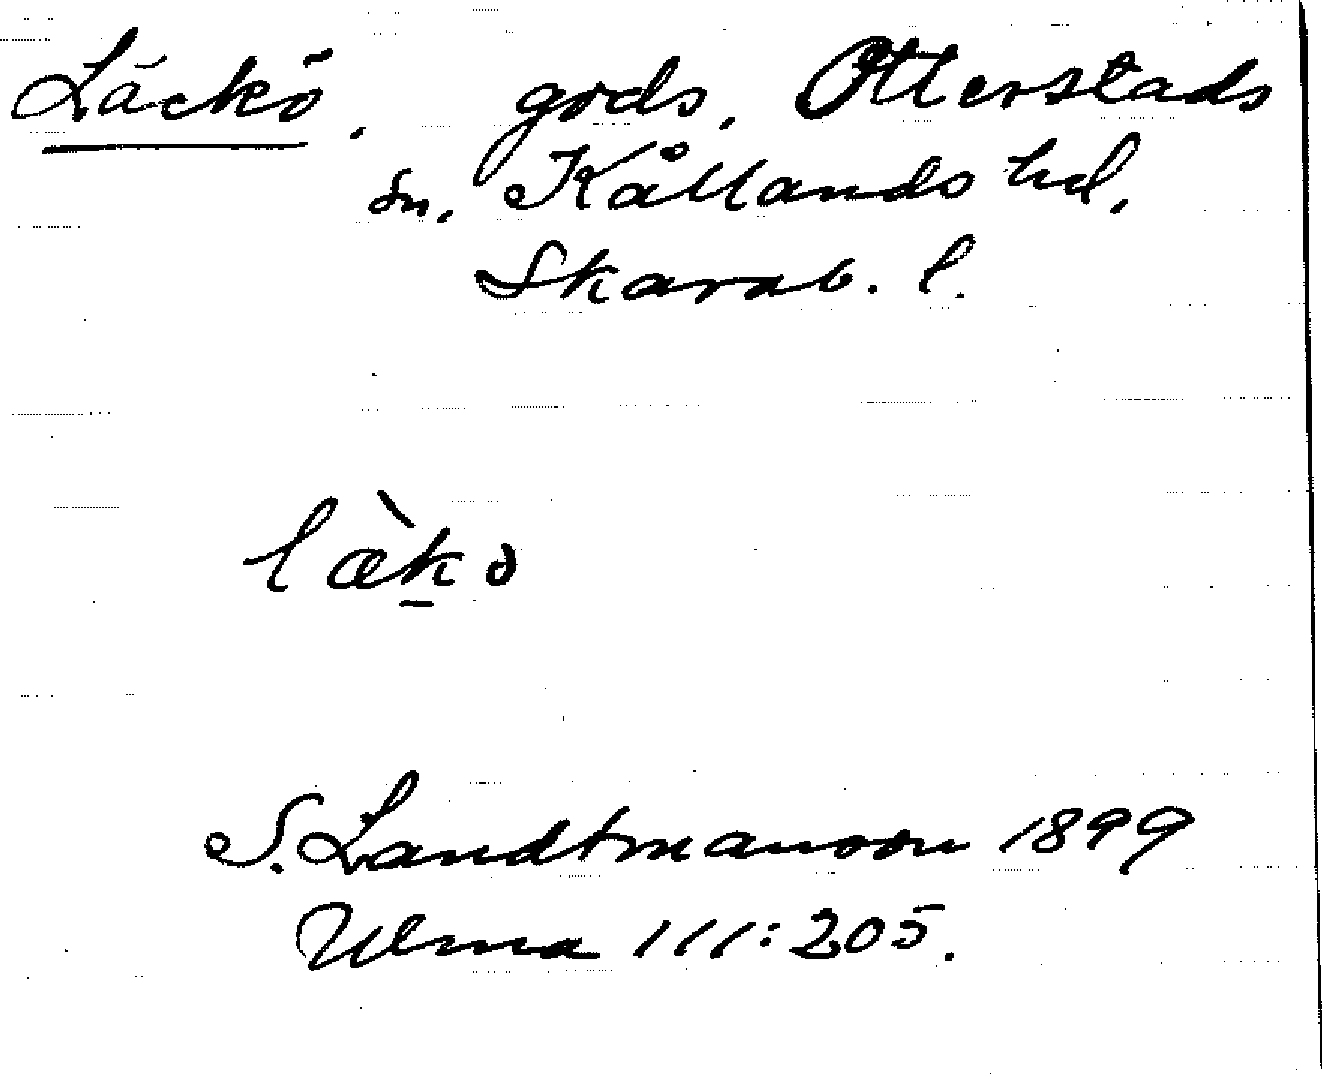 Läckö, gods, Otterstads
sn. Kållands hd,
Skarab. l.
læ̀k̲ö
S. Landtmanson 1899
Ulma 111:205.